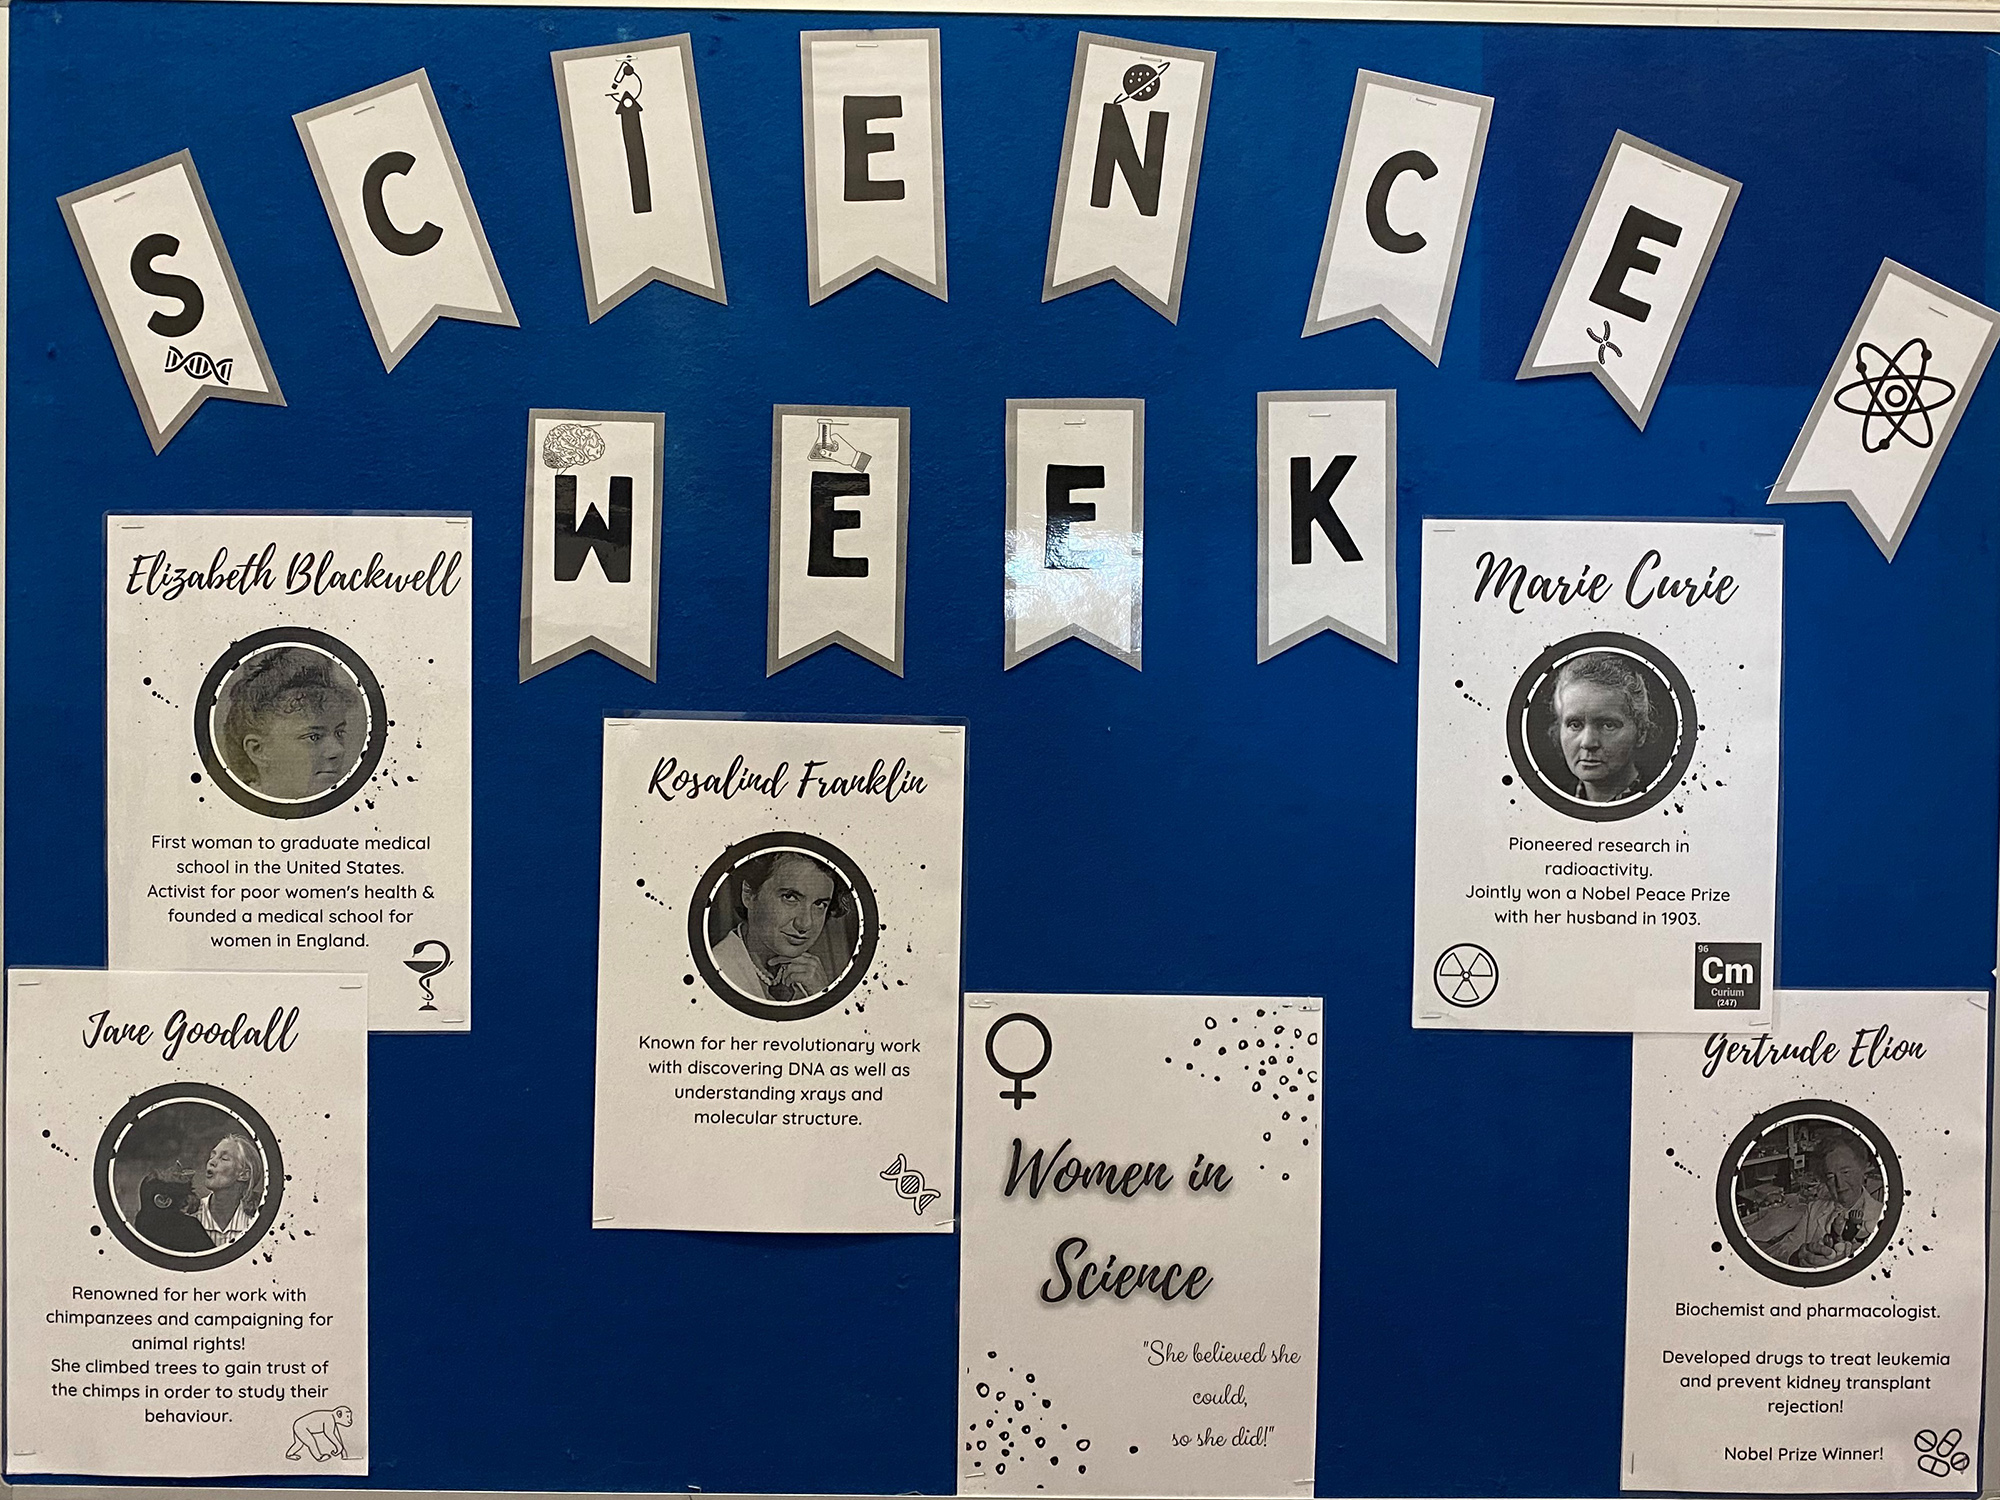 SCIENCE
WEEK
Elizabeth Blackwell
First woman to graduate medical
school in the United States.
Activist for poor women's health &
founded a medical school for
women in England.
Marie Curie
Pioneered research in
radioactivity.
Jointly won a Nobel Peace Prize
with her husband in 1903.
96
Cm
Curium
(247)
Rosalind Franklin
Known for her revolutionary work
with discovering DNA as well as
understanding xrays and
molecular structure.
Jane Goodall
Renowned for her work with
chimpanzees and campaigning for
animal rights!
She climbed trees to gain trust of
the chimps in order to study their
behaviour.
Women in
Science
"She believed she
could,
so she did!"
Gertrude Elion
Biochemist and pharmacologist.
Developed drugs to treat leukemia
and prevent kidney transplant
rejection!
Nobel Prize Winner!